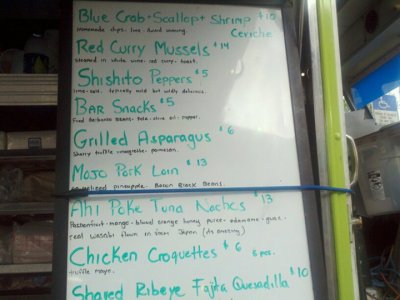 Blue Crab + Scallop + Shrimp $10
Ceviche
homemade chips - lime - Award winning.
Red Curry Mussels $14
steamed in white wine - red curry - toast.
Shishito Peppers $5
lime - salt. typically mild but wildly delicious.
Bar Snacks $5
Fried Garbanzo Beans - Feta - olive oil - pepper.
Grilled Asparagus $6
Sherry truffle - vinaigrette - parmesan.
Mojo Pork Loin $13
pineapple. Bacon Black Beans.
Ahi Poke Tuna Nachos $13
Passionfruit - mango - blood orange honey puree - edamame - guac -
real wasabi flown in from Japan (its amazing)
Chicken Croquettes $6 5 pcs.
truffle mayo.
Shared Ribeye Fajita Quesadilla $10